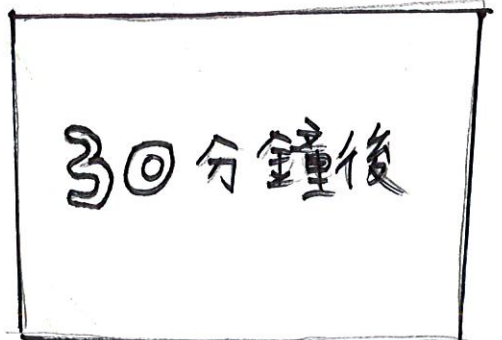 30分鐘後